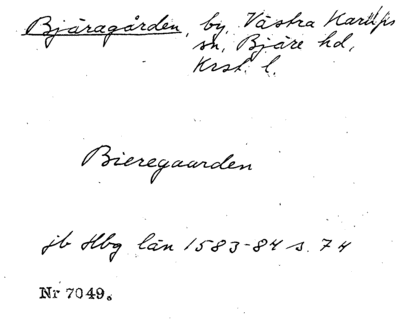 Bjäragården, by, Västra Karups
sn, Bjäre hd,
Krst. l.
Bieregaarden
jb Hbg län 1583-84 s. 74
Nr 7049.